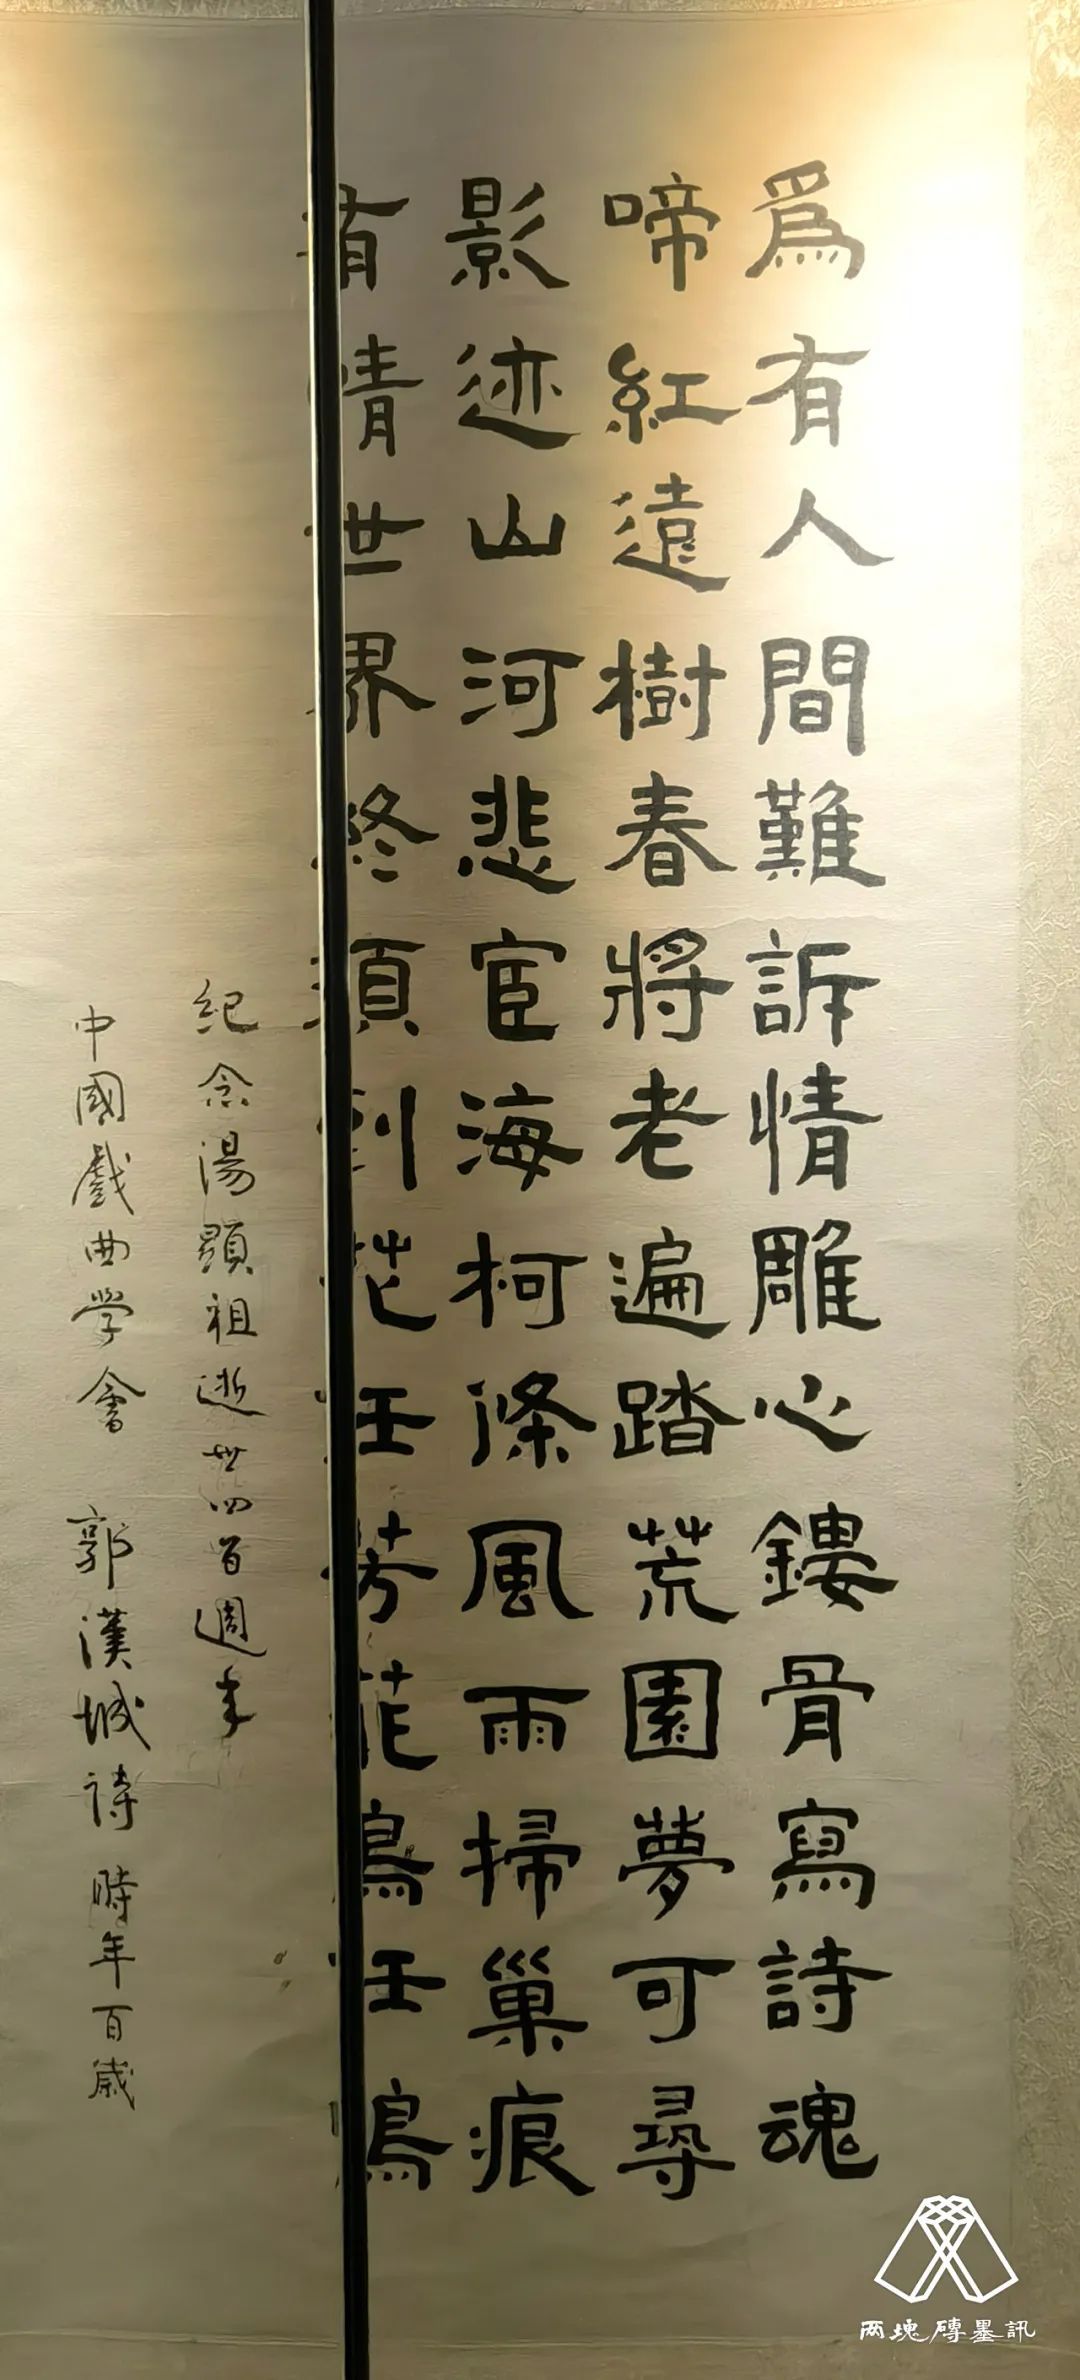 爲有人間難訴情雕心鏤骨寫詩魂
啼紅遠樹春將老遍踏荒園夢可尋
影迹山河悲宦海柯條風雨掃巢痕
有情世界終須到花任芳鳥任鳴
紀念湯顯祖逝世四百週年
中國戲曲学會 郭漢城詩 時年百歲
两塊磚墨訊